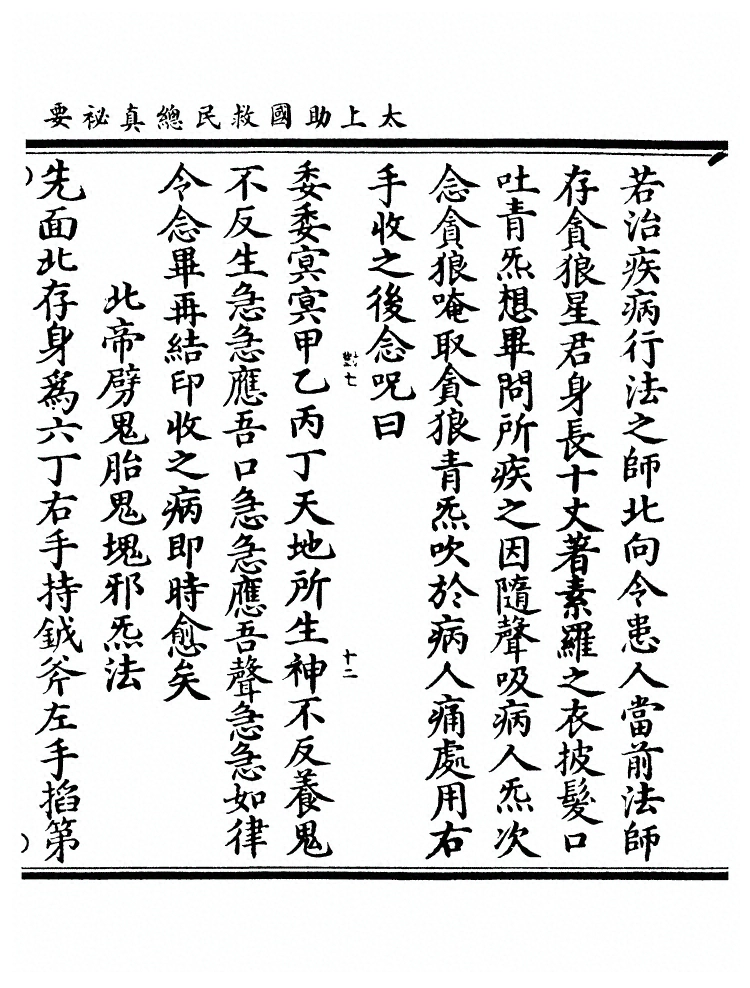 太上助國救民總真祕要
若治疾病行法之師北向令患人當前法師
存貪狼星君身長十丈著素羅之衣披髮口
吐青炁想畢問所疾之因隨聲吸病人炁次
念貪狼唵取貪狼青炁吹於病人痛處用右
手收之後念呪曰
七
十二
委委冥冥甲乙丙丁天地所生神不反養鬼
不反生急急應吾口急急應吾聲急急如律
令念畢再結印收之病即時愈矣
北帝劈鬼胎鬼塊邪炁法
先面北存身爲六丁右手持鉞斧左手掐第